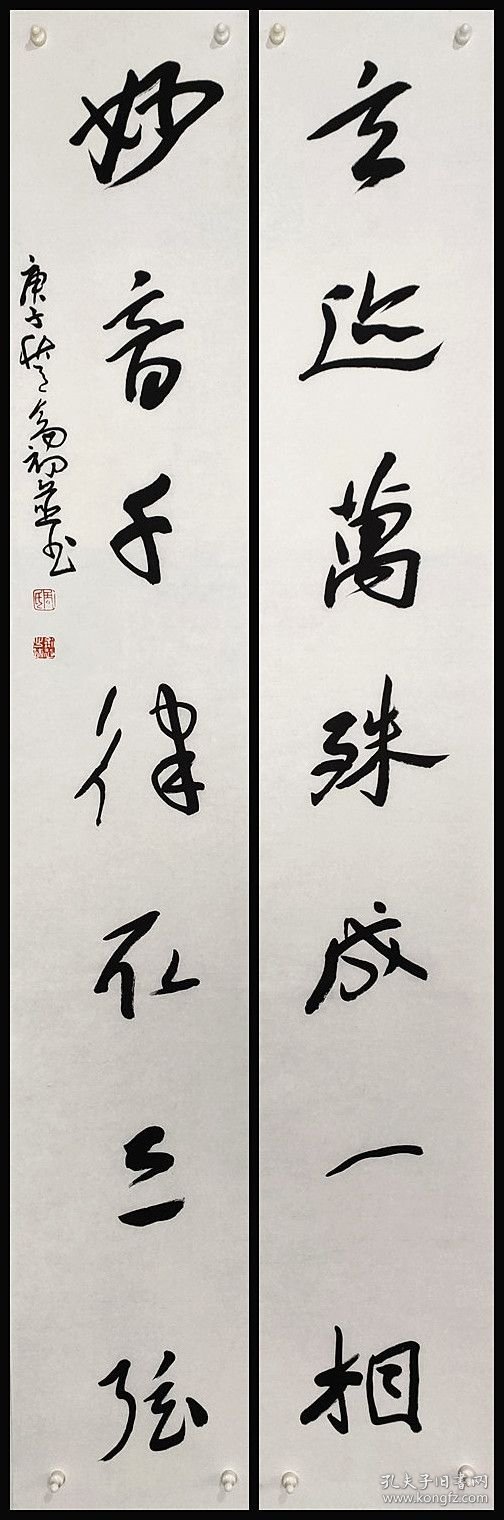 玄迹萬殊成一相
妙音千律三弦
庚子書
孔夫子旧書网
www.kongfz.com